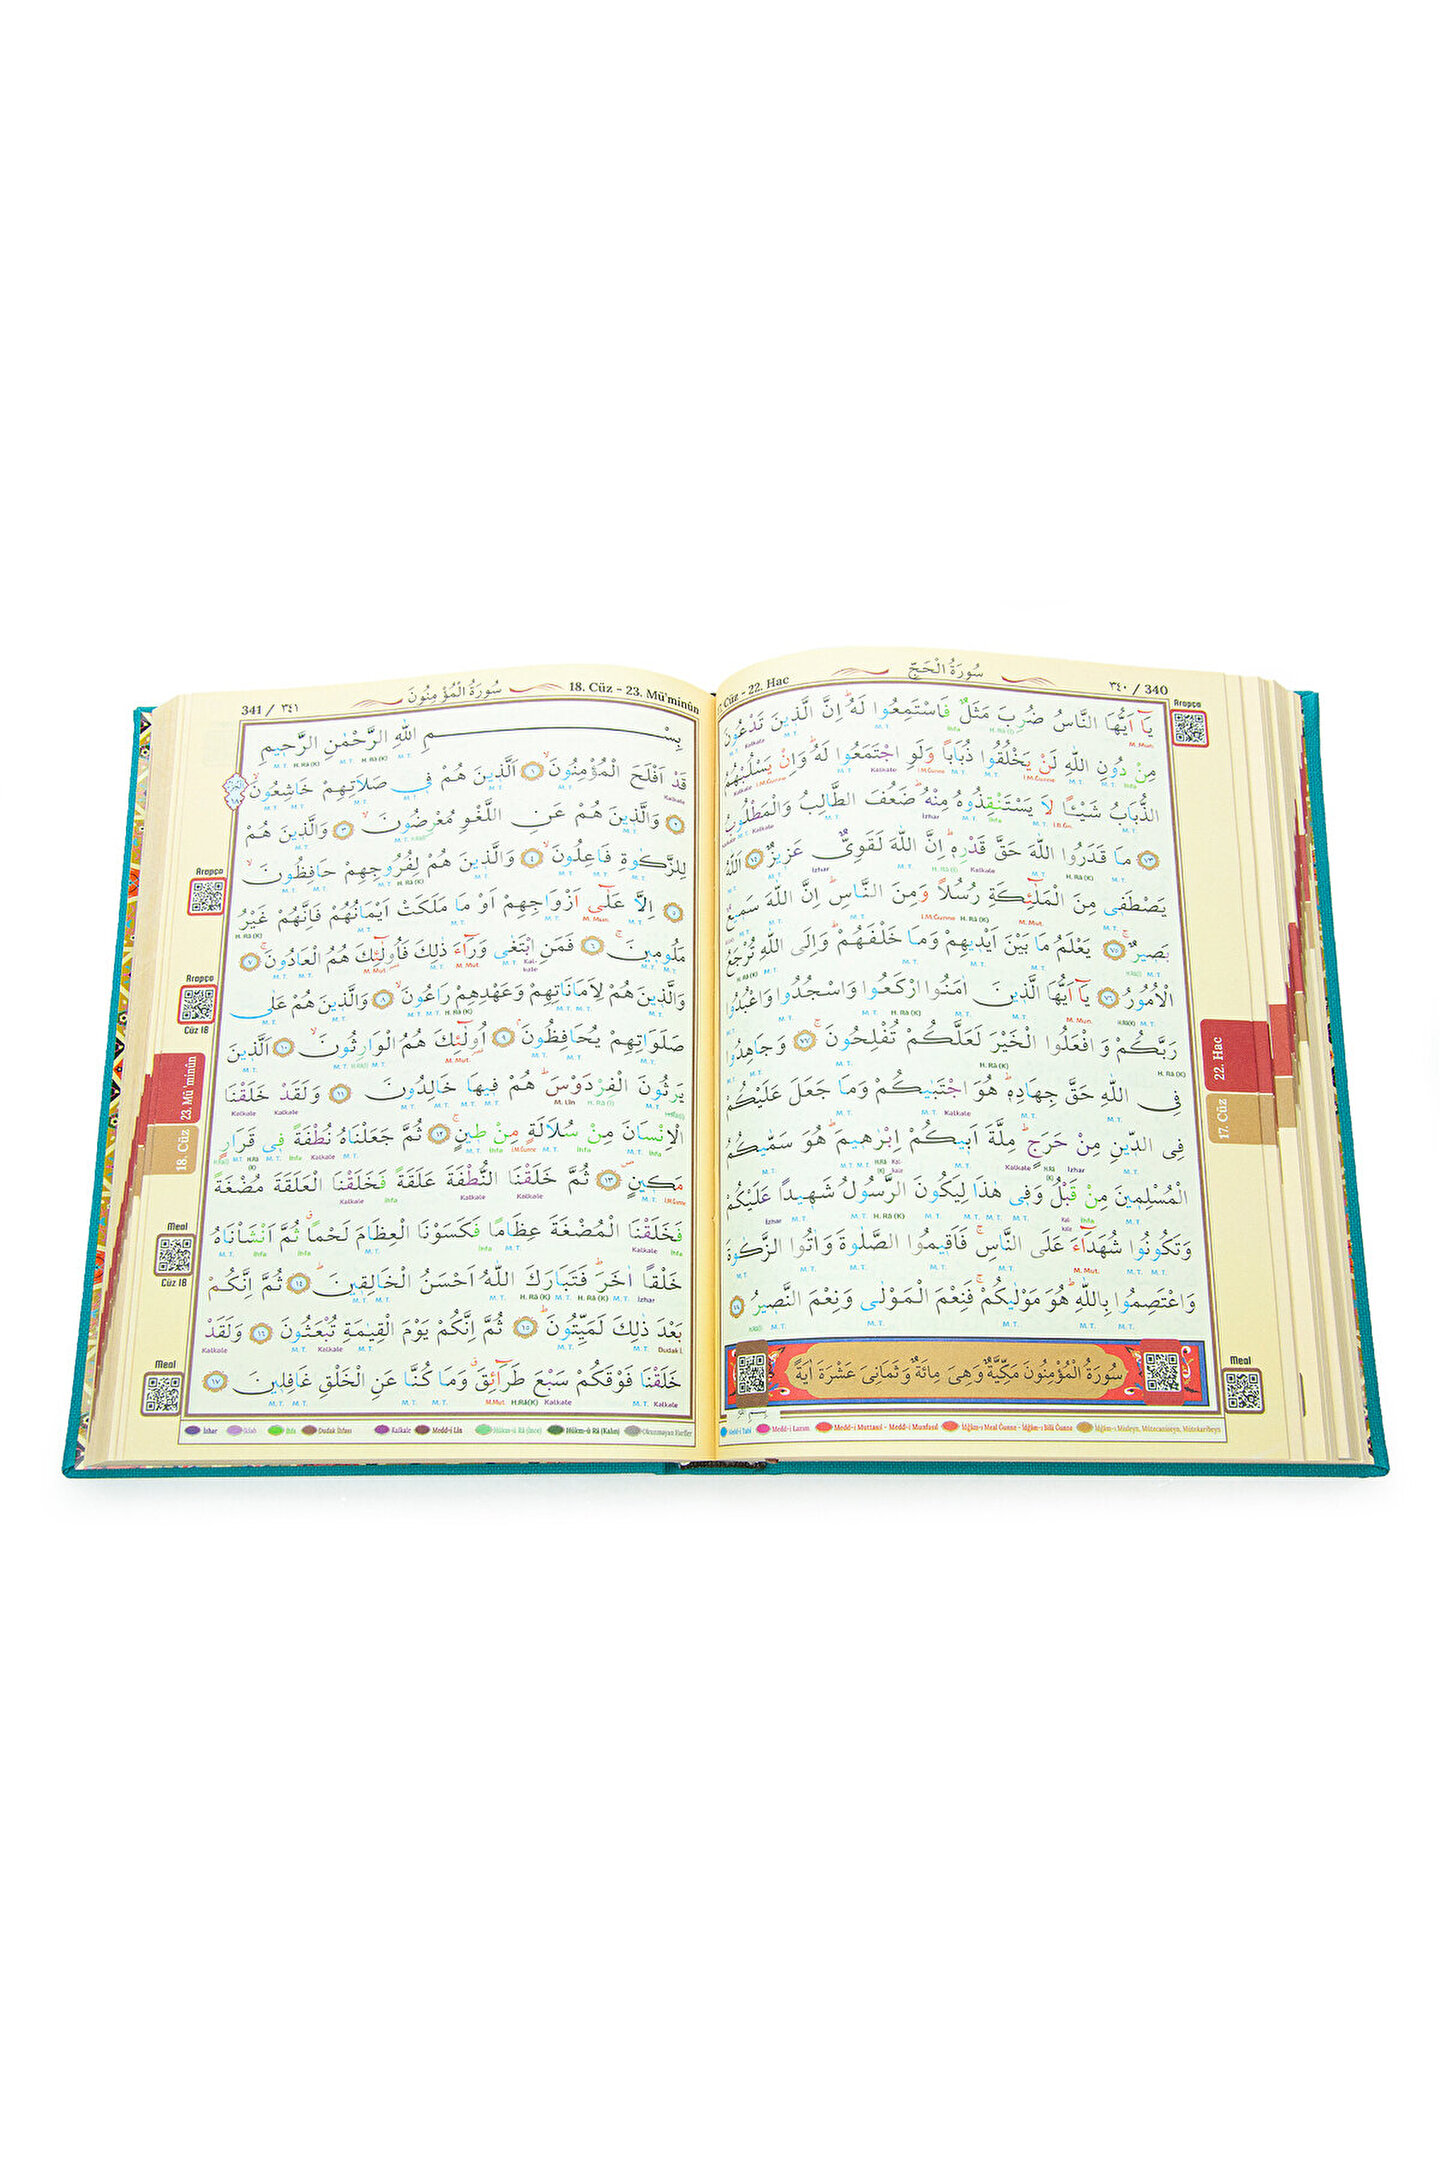 17. Cüz - 22. Hac
سُورَةُ الْحَجِّ
٣٤٠ / 340
يَٓا اَيُّهَا النَّاسُ ضُرِبَ مَثَلٌ فَاسْتَمِعُوا لَهُۜ اِنَّ الَّذ۪ينَ تَدْعُونَ
مِنْ دُونِ اللّٰهِ لَنْ يَخْلُقُوا ذُبَاباً وَلَوِ اجْتَمَعُوا لَهُۜ وَاِنْ يَسْلُبْهُمُ
الذُّبَابُ شَيْـٔاً لَا يَسْتَنْقِذُوهُ مِنْهُۜ ضَعُفَ الطَّالِبُ وَالْمَطْلُوبُ
﴿٧٣﴾ مَا قَدَرُوا اللّٰهَ حَقَّ قَدْرِه۪ۜ اِنَّ اللّٰهَ لَقَوِيٌّ عَز۪يزٌ ﴿٧٤﴾ اَللّٰهُ
يَصْطَف۪ي مِنَ الْمَلٰٓئِكَةِ رُسُلاً وَمِنَ النَّاسِۜ اِنَّ اللّٰهَ سَم۪يعٌ
بَص۪يرٌۚ ﴿٧٥﴾ يَعْلَمُ مَا بَيْنَ اَيْد۪يهِمْ وَمَا خَلْفَهُمْۜ وَاِلَى اللّٰهِ تُرْجَعُ
الْاُمُورُ ﴿٧٦﴾ يَٓا اَيُّهَا الَّذ۪ينَ اٰمَنُوا ارْكَعُوا وَاسْجُدُوا وَاعْبُدُوا
رَبَّكُمْ وَافْعَلُوا الْخَيْرَ لَعَلَّكُمْ تُفْلِحُونَۚ ﴿٧٧﴾ وَجَاهِدُوا
فِي اللّٰهِ حَقَّ جِهَادِه۪ۜ هُوَ اجْتَبٰيكُمْ وَمَا جَعَلَ عَلَيْكُمْ
فِي الدّ۪ينِ مِنْ حَرَجٍۜ مِلَّةَ اَب۪يكُمْ اِبْرٰه۪يمَۜ هُوَ سَمّٰيكُمُ
الْمُسْلِم۪ينَ مِنْ قَبْلُ وَف۪ي هٰذَا لِيَكُونَ الرَّسُولُ شَه۪يداً عَلَيْكُمْ
وَتَكُونُوا شُهَدَٓاءَ عَلَى النَّاسِۚ فَاَق۪يمُوا الصَّلٰوةَ وَاٰتُوا الزَّكٰوةَ
وَاعْتَصِمُوا بِاللّٰهِۜ هُوَ مَوْلٰيكُمْۚ فَنِعْمَ الْمَوْلٰى وَنِعْمَ النَّص۪يرُ ﴿٧٨﴾
سُورَةُ الْمُؤْمِنُونَ مَكِّيَّةٌ وَهِيَ مِائَةٌ وَثَمَانِيَ عَشْرَةَ اٰيَةً
Medd-i Tabî Medd-i Lazım Medd-i Muttasıl - Medd-i Munfasıl İdğâm-ı Meal Gunne - İdğâm-ı Bilâ Gunne İdğâm-ı Misleyn, Mütecaniseyn, Mütekaribeyn
Arapça
22. Hac
17. Cüz
Meal
18. Cüz - 23. Mü'minûn
سُورَةُ الْمُؤْمِنُونَ
341 / ٣٤١
بِسْمِ اللّٰهِ الرَّحْمٰنِ الرَّح۪يمِ
قَدْ اَفْلَحَ الْمُؤْمِنُونَۙ ﴿١﴾ اَلَّذ۪ينَ هُمْ ف۪ي صَلَاتِهِمْ خَاشِعُونَۙ
﴿٢﴾ وَالَّذ۪ينَ هُمْ عَنِ اللَّغْوِ مُعْرِضُونَۙ ﴿٣﴾ وَالَّذ۪ينَ هُمْ
لِلزَّكٰوةِ فَاعِلُونَۙ ﴿٤﴾ وَالَّذ۪ينَ هُمْ لِفُرُوجِهِمْ حَافِظُونَۙ
﴿٥﴾ اِلَّا عَلٰٓى اَزْوَاجِهِمْ اَوْ مَا مَلَكَتْ اَيْمَانُهُمْ فَاِنَّهُمْ غَيْرُ
مَلُوم۪ينَۚ ﴿٦﴾ فَمَنِ ابْتَغٰى وَرَٓاءَ ذٰلِكَ فَاُو۬لٰٓئِكَ هُمُ الْعَادُونَۚ ﴿٧﴾
وَالَّذ۪ينَ هُمْ لِاَمَانَاتِهِمْ وَعَهْدِهِمْ رَاعُونَۙ ﴿٨﴾ وَالَّذ۪ينَ هُمْ عَلٰى
صَلَوَاتِهِمْ يُحَافِظُونَۢ ﴿٩﴾ اُو۬لٰٓئِكَ هُمُ الْوَارِثُونَۙ ﴿١٠﴾ اَلَّذ۪ينَ
يَرِثُونَ الْفِرْدَوْسَۜ هُمْ ف۪يهَا خَالِدُونَ ﴿١١﴾ وَلَقَدْ خَلَقْنَا
الْاِنْسَانَ مِنْ سُلَالَةٍ مِنْ ط۪ينٍۚ ﴿١٢﴾ ثُمَّ جَعَلْنَاهُ نُطْفَةً ف۪ي قَرَارٍ
مَك۪ينٍۖ ﴿١٣﴾ ثُمَّ خَلَقْنَا النُّطْفَةَ عَلَقَةً فَخَلَقْنَا الْعَلَقَةَ مُضْغَةً
فَخَلَقْنَا الْمُضْغَةَ عِظَاماً فَكَسَوْنَا الْعِظَامَ لَحْماًۗ ثُمَّ اَنْشَأْنَاهُ
خَلْقاً اٰخَرَۜ فَتَبَارَكَ اللّٰهُ اَحْسَنُ الْخَالِق۪ينَۜ ﴿١٤﴾ ثُمَّ اِنَّكُمْ
بَعْدَ ذٰلِكَ لَمَيِّتُونَۜ ﴿١٥﴾ ثُمَّ اِنَّكُمْ يَوْمَ الْقِيٰمَةِ تُبْعَثُونَ ﴿١٦﴾ وَلَقَدْ
خَلَقْنَا فَوْقَكُمْ سَبْعَ طَرَٓائِقَۗ وَمَا كُنَّا عَنِ الْخَلْقِ غَافِل۪ينَ ﴿١٧﴾
İzhar İklab İhfa Dudak İhfası Kalkale Medd-i Lîn Hükm-ü Râ (İnce) Hükm-ü Râ (Kalın) Okunmayan Harfler
Arapça
Arapça
Cüz 18
23. Mü'minûn
18. Cüz
Meal
Cüz 18
Meal